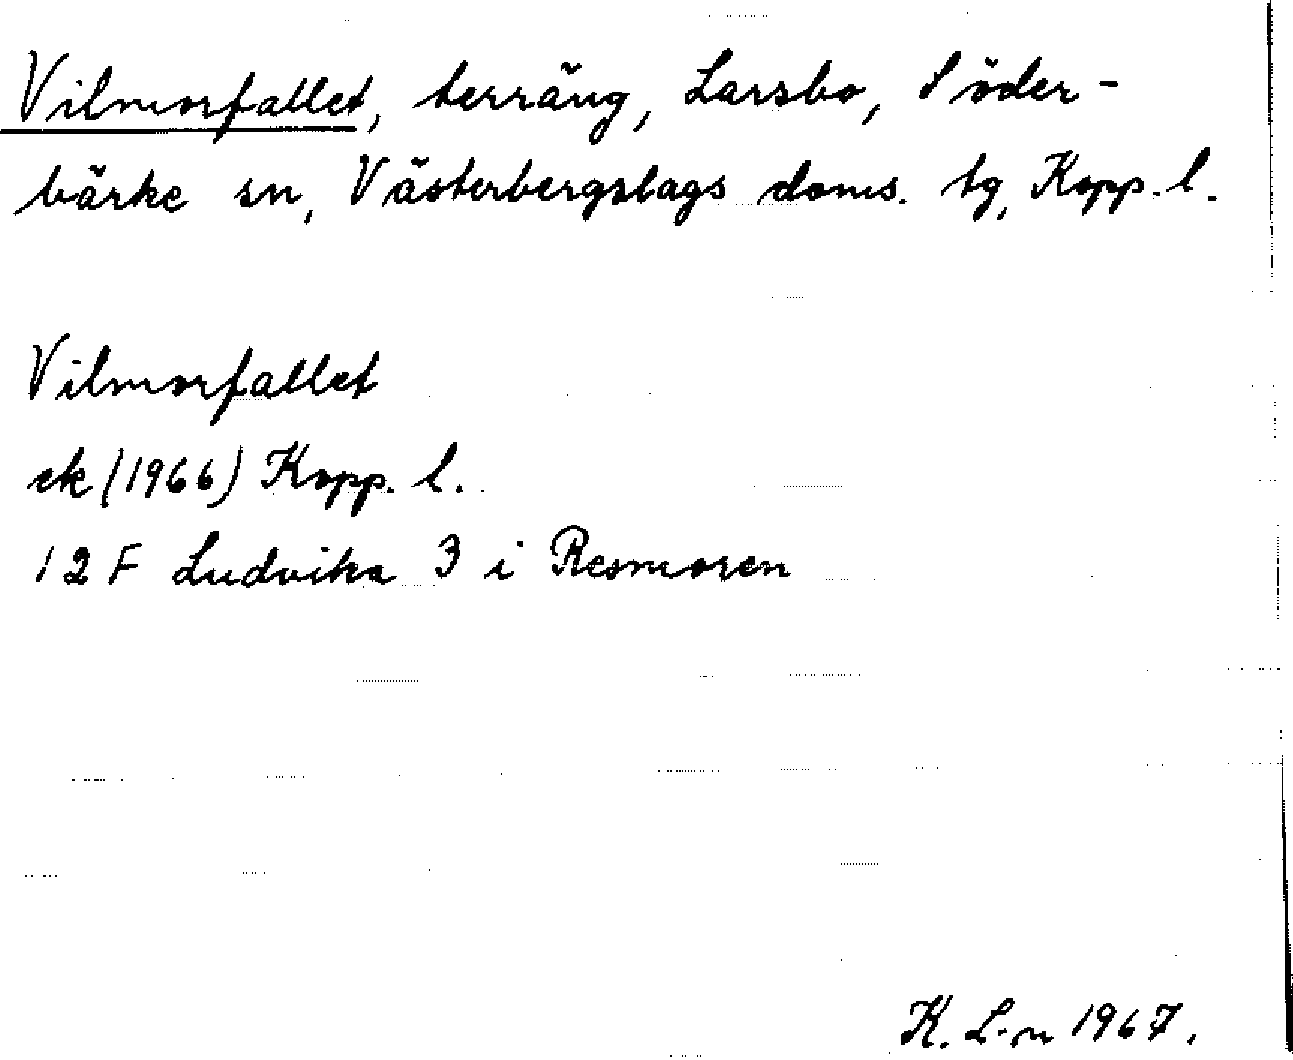 Vilmorfallet, terräng, Larsbo, Söder-
bärke sn, Västerbergslags doms. tg, Kopp. l.
Vilmorfallet
ek (1966) Kopp. l.
12 F Ludvika 3 i Resmoren
K. L-n 1967.